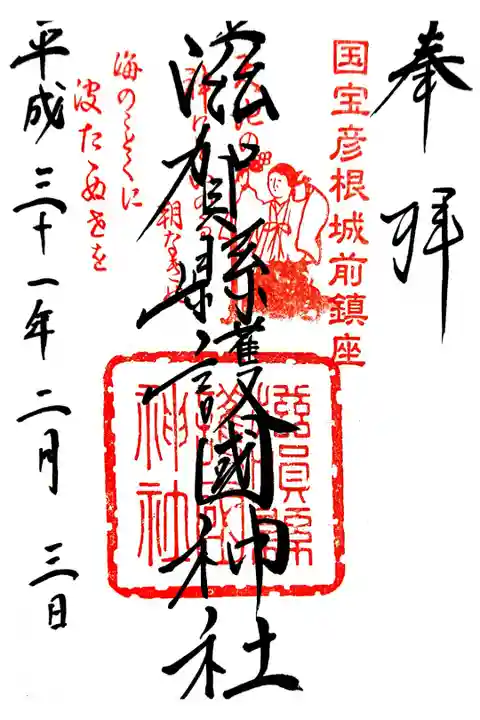 奉拝
国宝彦根城前鎮座
滋賀縣護國神社
滋賀縣
護國
神社
朝な
海のことくに
波たゝぬ世を
平成三十一年二月三日